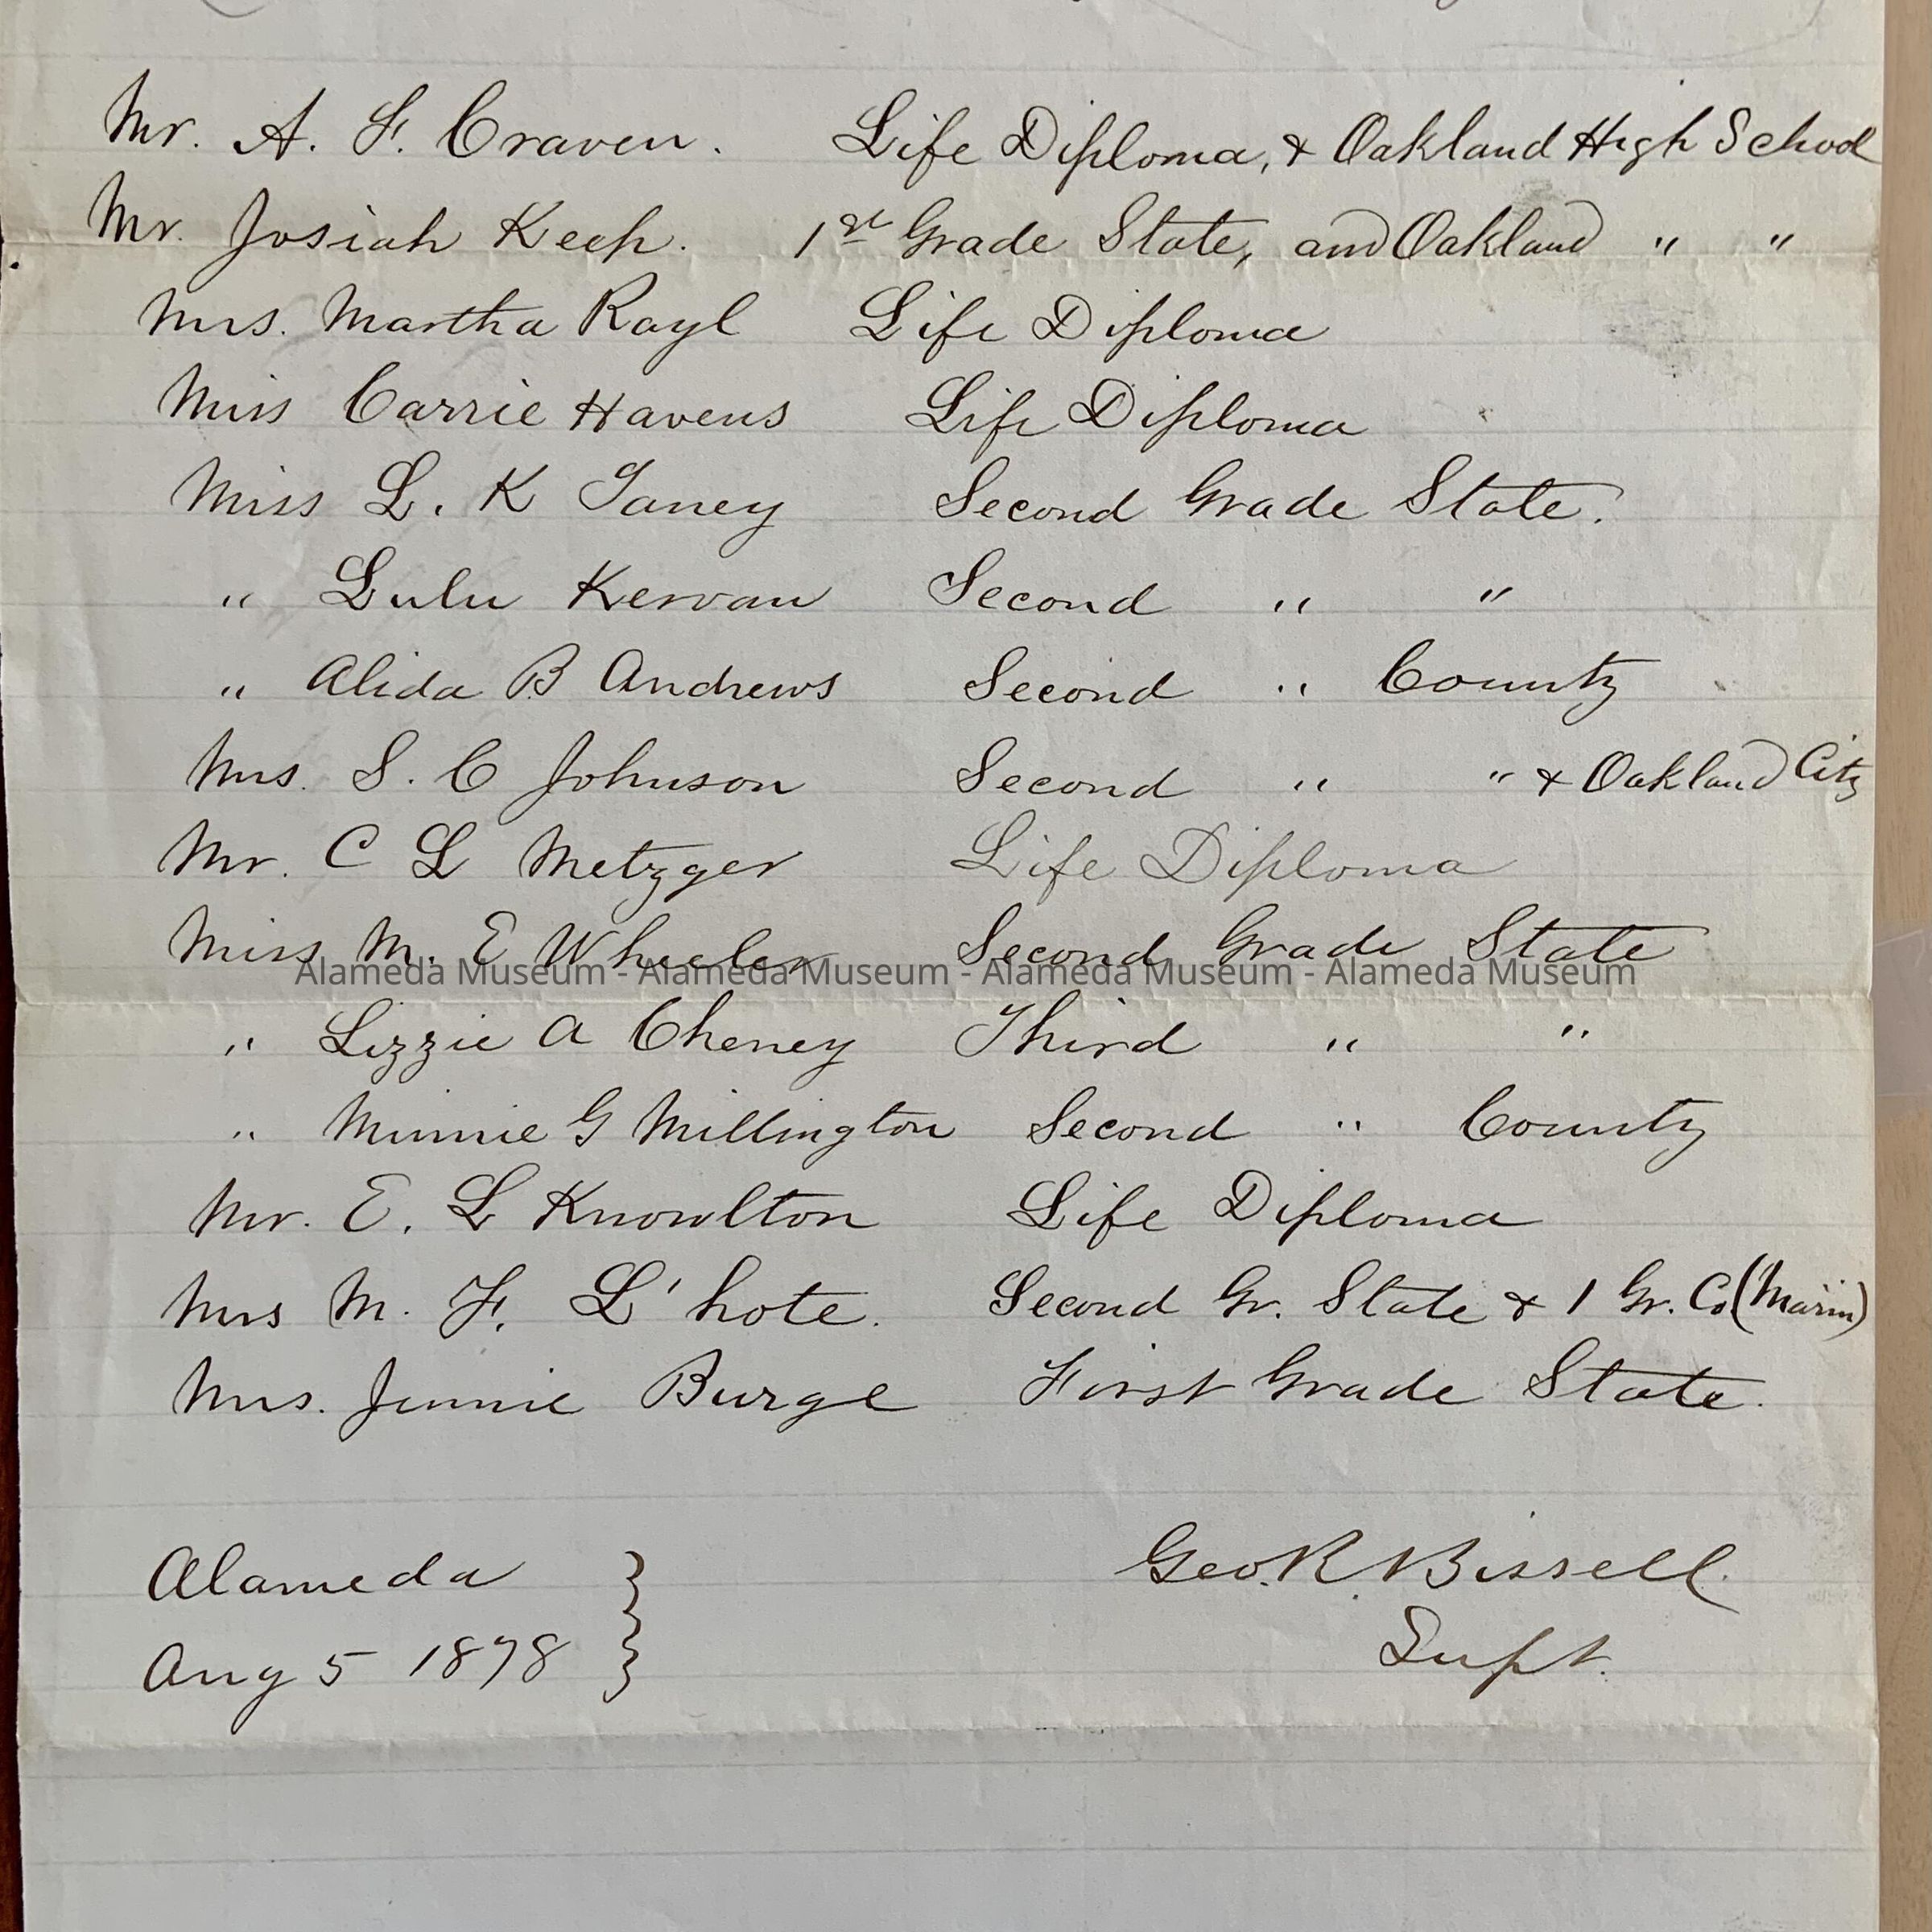 Mr. A. F. Craven. Life Diploma, & Oakland High School
Mr. Josiah Keep. 1st Grade State, and Oakland " "
Mrs. Martha Rayl Life Diploma
Miss Carrie Havens Life Diploma
Miss L. K Taney Second Grade State.
" Lulu Kervan Second " "
" Alida B Andrews Second " County
Mrs. S. C Johnson Second " " & Oakland City
Mr. C L Metzger Life Diploma
Miss M. E Wheeler Second Grade State
Alameda Museum - Alameda Museum - Alameda Museum - Alameda Museum
" Lizzie A Cheney Third " "
" Minnie G Millington Second " County
Mr. E. L Knowlton Life Diploma
Mrs M. F. L'hote. Second Gr. State & 1 Gr. Co (Marin)
Mrs. Jennie Burge First Grade State.
Alameda } Geo. R. Bissell.
Aug 5 1878 } Supt.